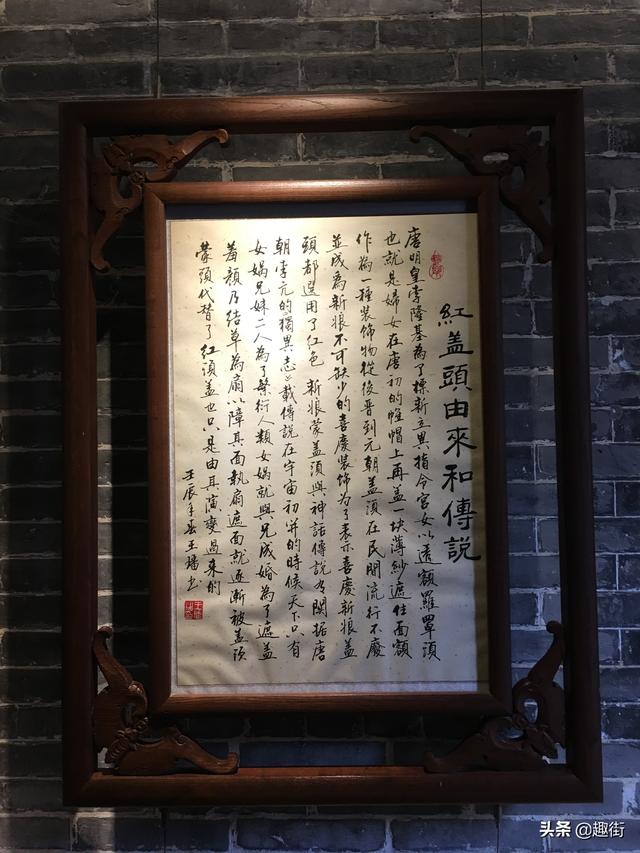 紅盖頭由來和傳說
唐明皇李隆基為了標新立異指令宮女以透額羅罩頭
也就是婦女在唐初的帷帽上再盖一块薄紗遮住面額
作為一種装飾物從後晋到元朝盖頭在民間流行不廢
並成為新娘不可缺少的喜慶装飾为了表示喜慶新娘盖
頭都選用了紅色 新娘蒙盖頭與神話傳說有関据唐
朝李亢的獨異志上載傳說在宇宙初开的時候天下只有
女媧兄妹二人為了繁衍人類女媧就與兄成婚為了遮盖
羞顏乃结草為扇以障其面執扇遮面就逐漸被盖頭
蒙頭代替了紅頭盖也只是由其演變過来的
壬辰年 王 書
头条 @趣街